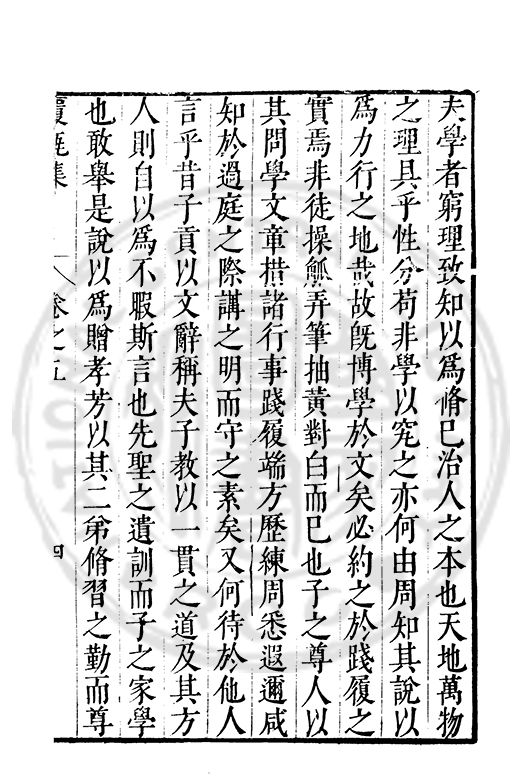 夫學者窮理致知以爲脩巳治人之本也天地萬物
之理具乎性分苟非學以究之亦何由周知其說以
爲力行之地哉故旣博學於文矣必約之於踐履之
實焉非徒操觚弄筆抽黃對白而巳也子之尊人以
其問學文章措諸行事踐履端方歷練周悉遐邇咸
知於過庭之際講之明而守之素矣又何待於他人
言乎昔子貢以文辭稱夫子教以一貫之道及其方
人則自以爲不暇斯言也先聖之遺訓而子之家學
也敢舉是說以爲贈孝芳以其二弟脩習之勤而尊
覆瓿集 卷之五 四